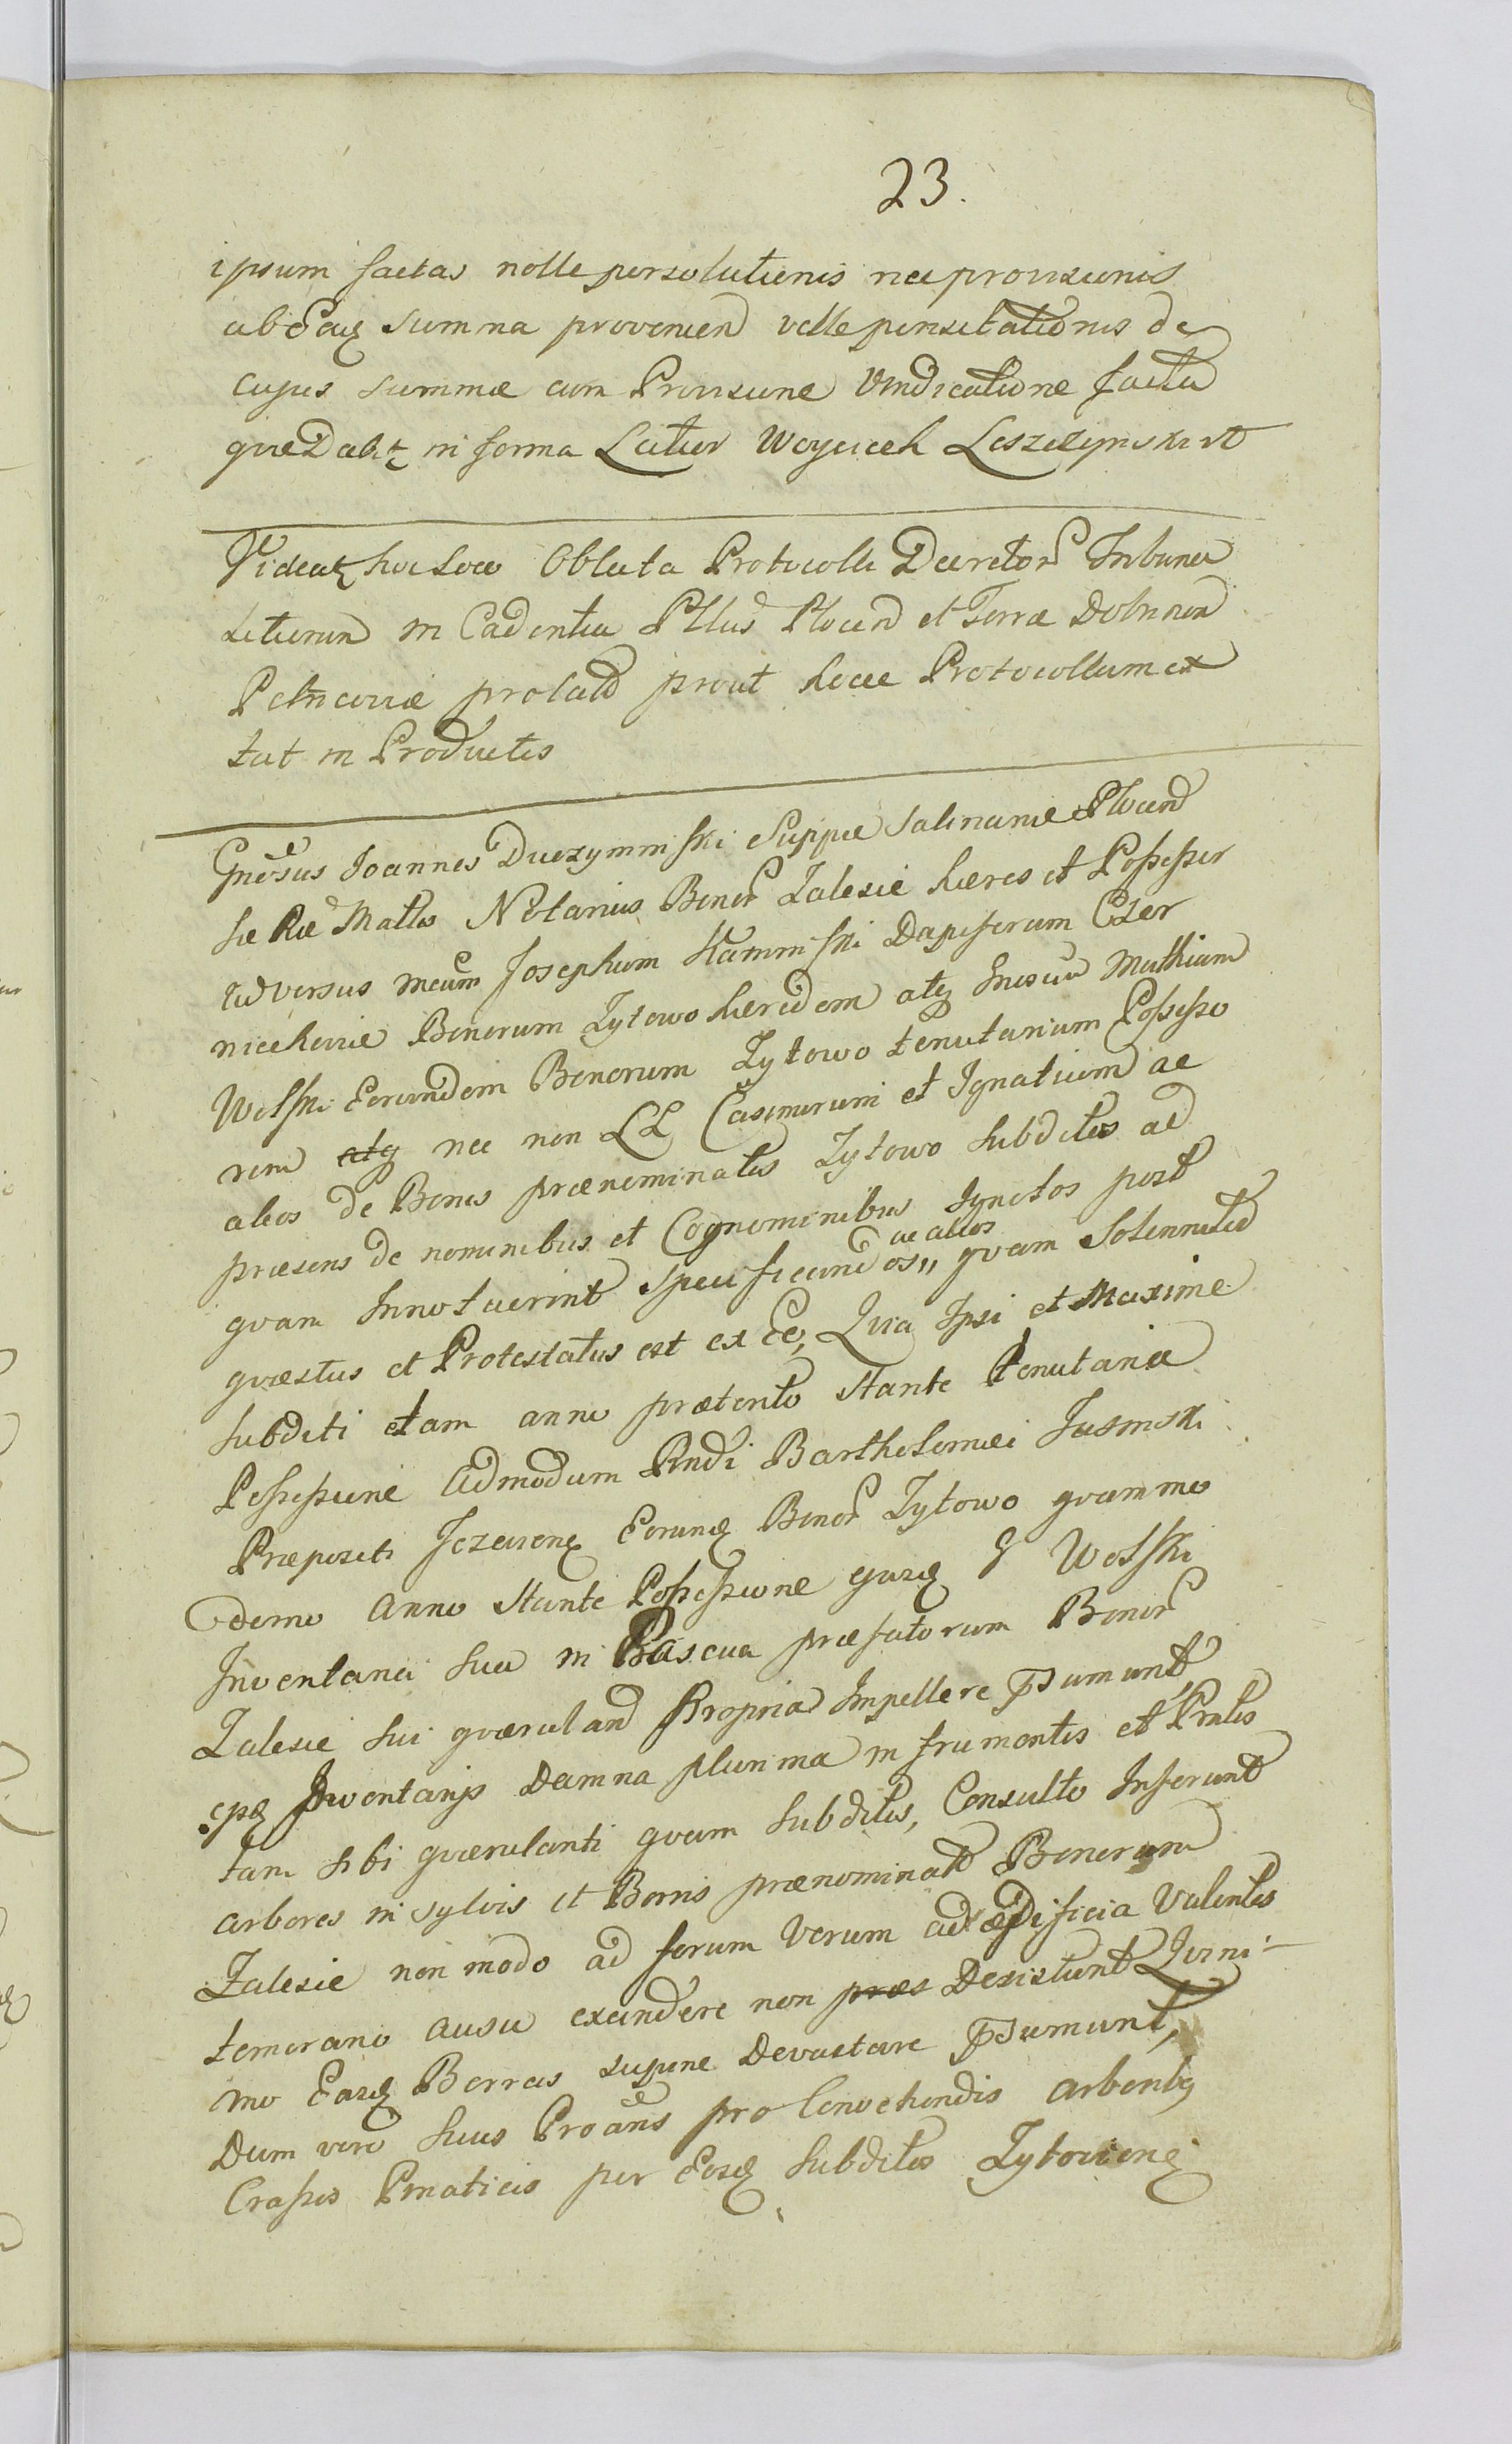 23.
ipsum factas nolle persolutionis nec provisionis
ab Eaq summa provenien velle pensitationis de
cujus summæ cum Provisione Vindicatione facta
quæ Dabit in forma Latior Woyciech Leszczynski
Videatq hoc loco Oblata Protocolli Decretor Tribuna
litiorum in Cadentia Pttus Plocen et Terræ Dobrinen
Petricoviæ prolat prout hocce Protocollum ex
tat in Productis
Gnosus Joannes Duczyminski Suppæ Salinariæ Plocen
Sæ Ræ Mattis Notarius Bonor Zalesie hæres et Possessor
adversus Mcum Josephum Kaminski Dapiferum Czer
nicchoviæ Bonorum Zytowo hæredem atq Gnosum Mathiam
Wolski Eorundem Bonorum Zytowo tenutarium Possesso
rem atq nec non LL Casimirum et Ignatium ac
alios de Bonis prænominatis Zytowo subditos ad
præsens de nominibus et Cognominibus Ignotos post
ac alios
quam Innotuerint specificandos,, quam Solennited
quæstus et Protestatus est ex Eo, Quia Ipsi et Maxime
subditi etam anno prætento stante tenutaria
Possessione Admodum Rndi Bartholomæi Jasinski
Præpositi Jezeviens Eorunq Bonor Zytowo quam mo
derno anno stante Possessione ejusq G Wolski
Inventaria sua in Pascua præfatorum Bonor
Zalesie sui quærulan Propria Impellere psumunt
epq Inventarijs Damna plurima in frumentis et Pratis
tam sibi quærulanti quam subditis, Consulto Inferunt
arbores in sylvis et Borris prænominat Bonorum
Zalesie non modo ad forum Verum ad ædificia Valentes
temerario ausu exandere non præs Desistunt Quini-
mo Easq Borras supine Devastare psumunt,
Dum vero suus Proans pro Convehendis arboribq
Crassis Pmaticis per Eosq subditos Zytoviens